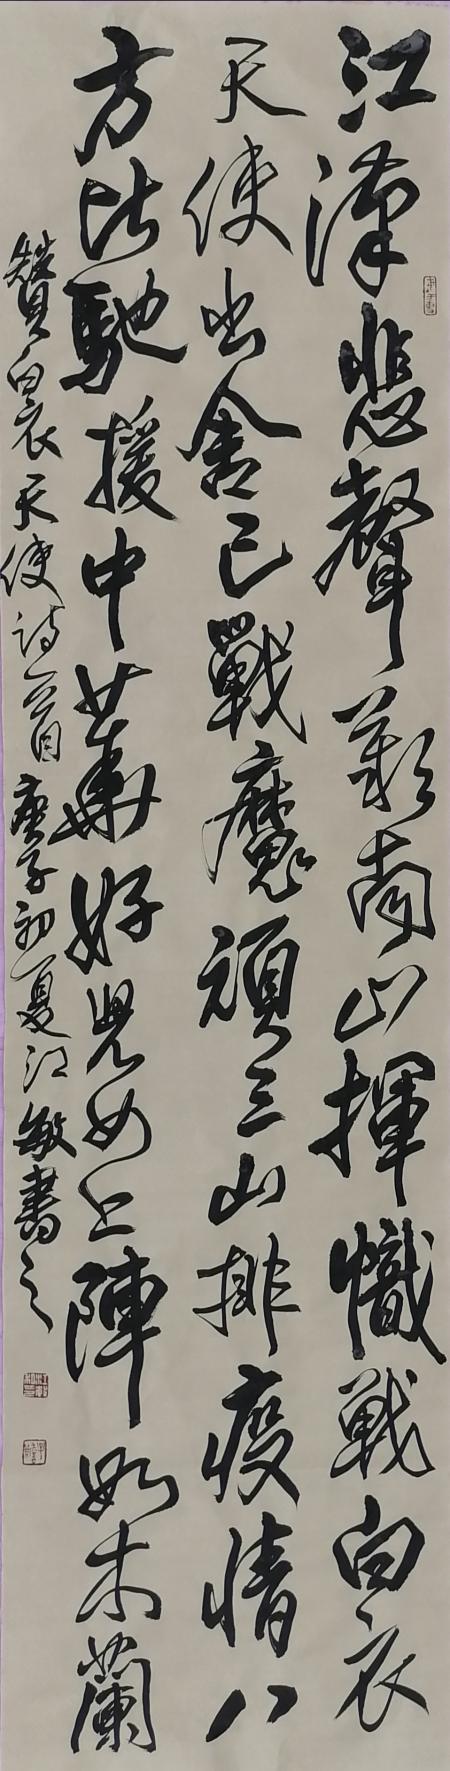 江漢悲聲嘆南山揮幟战白衣
天使出舍己戰魔頑三山排疫情八
方比馳援中華好児女上陣如木蘭
贊白衣天使詩一首庚子初夏江敏書之